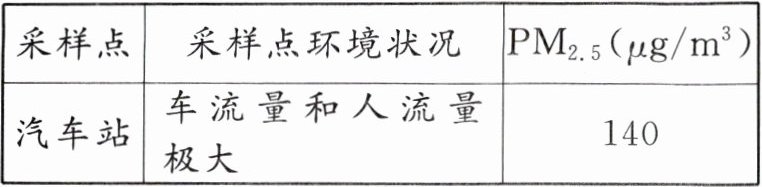 采样点 采样点环境状况 PM₂.₅(μg/m³)
汽车站 车流量和人流量极大 140